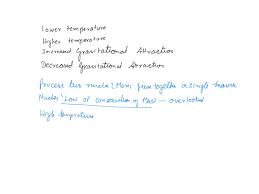 Lower temperature
Higher temperature
Increased Gravitational Attraction
Decreased Gravitational Attraction
Process two nuclei? Mom, fuse together a single heavier
Nucleus "Low of conservation of Mass — overlooked
High temperature